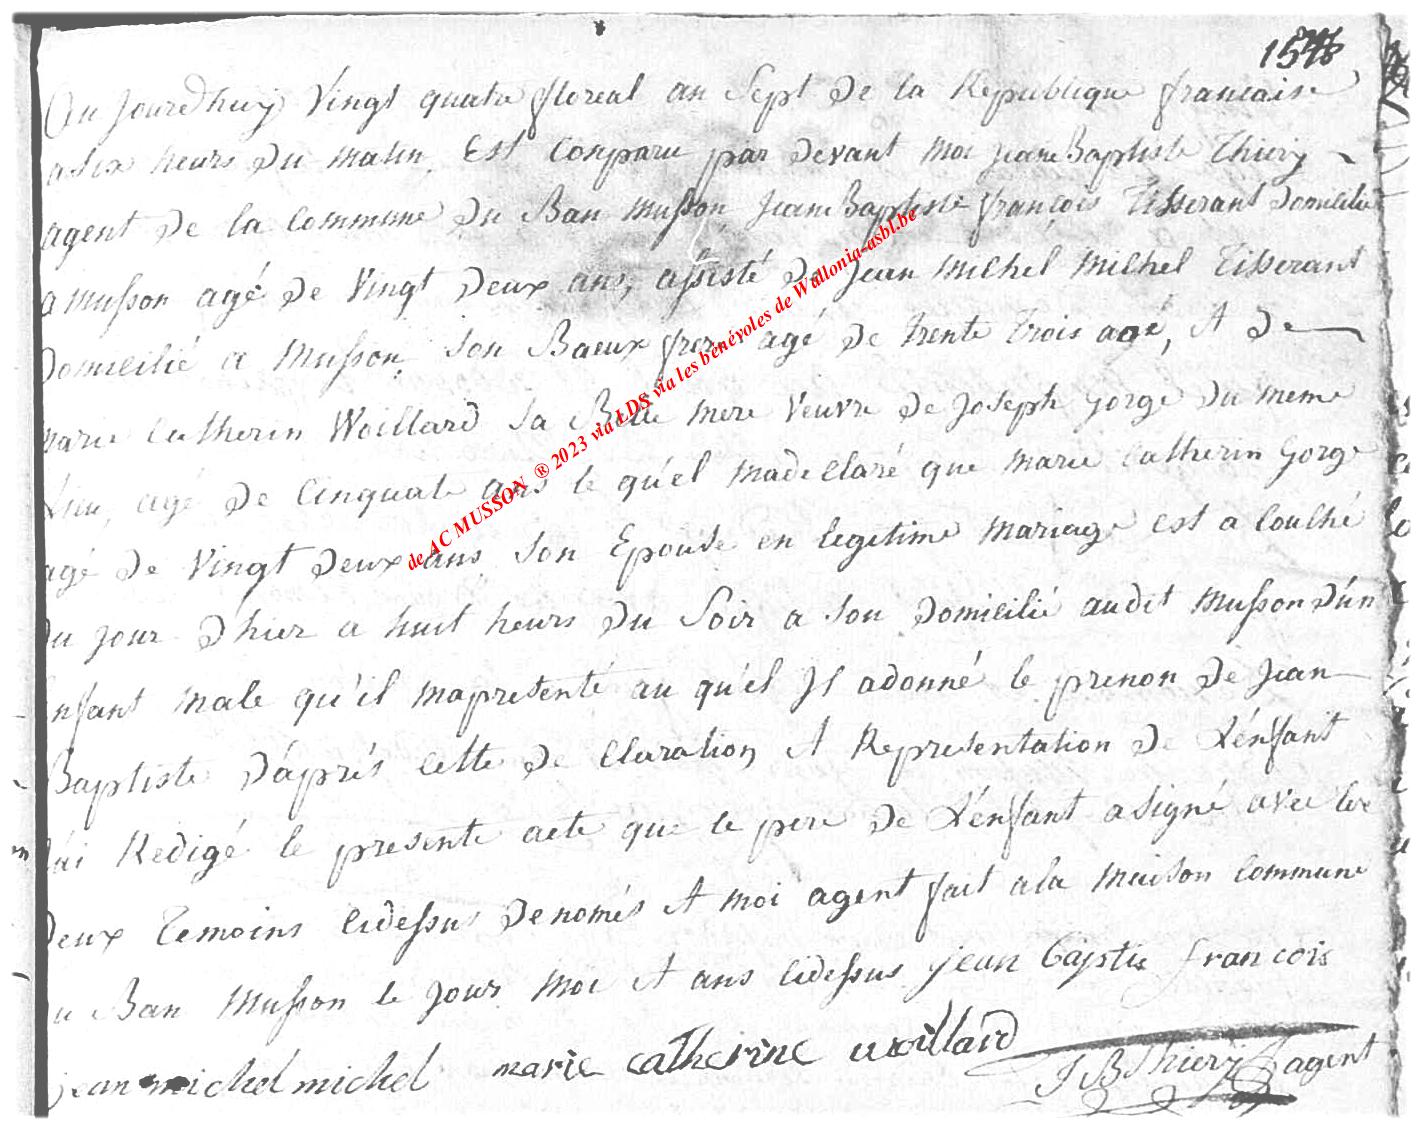 Au Jourdhuy Vingt quatre floreal an Sept De la Republique francaise
a six heurs Du matin, Est Comparu par Devant moi jean Baptiste Thiery
agent De la Commune Du Ban Musson Jean Baptiste francois Tisserant Domicilié
a Musson agé De Vingt Deux ans, assisté De Jean Michel Michel Tisserant
Domicilié a Musson, Son Baeux frere agé De trente trois agé, et De
marie Catherin Woillard Sa Belle mere Veuvre De Joseph Gorge Du meme
Lieu, agé De Cinquate ans le qu'el madeClaré que marie Catherin Gorge
agé De Vingt Deux ans Son Epouse en legitime mariage est a Couché
Du jour D'hier a huit heurs Du Soir a Son Domicilié audit Musson D'un
Enfant male qu'il mapresenté au qu'el Jl adonné le prenon De Jean
Baptiste D'aprés Cette De Claration et Representation De L'enfant
Jai Redigé le presente acte que le pere De L'enfant a Signé avec
Deux Temoins Cidessus Denomés et moi agent fait a la maison Commune
Du Ban Musson le Jour moi et ans Cidessus jean baptis francois
jean michel michel marie catherine woillard
J B Thiery agent
de AC MUSSON ® 2023 via LDS via les bénévoles de Wallonia-asbl.be